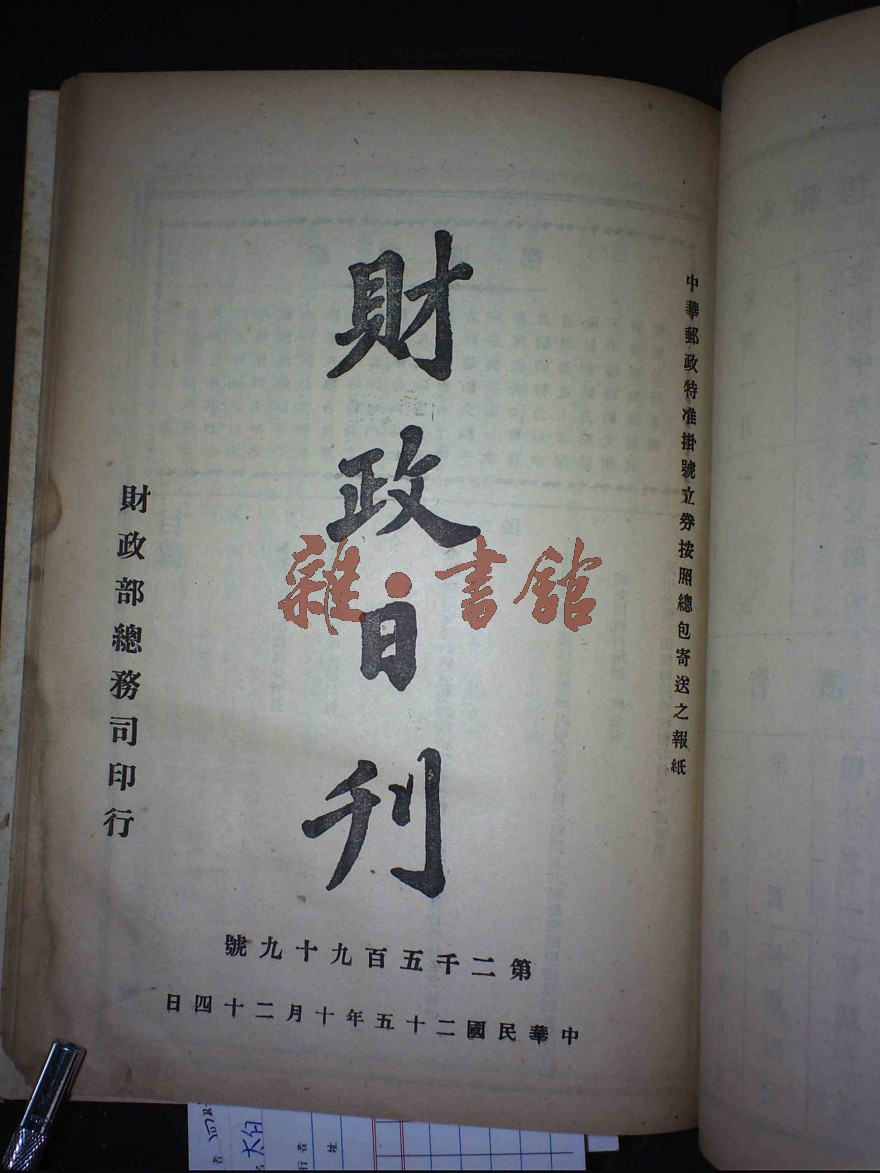 中華郵政特准掛號立劵按照總包寄送之報紙
財政日刊
財政部總務司印行
第二千五百九十九號
中華民國二十五年十月二十四日
雜·書館